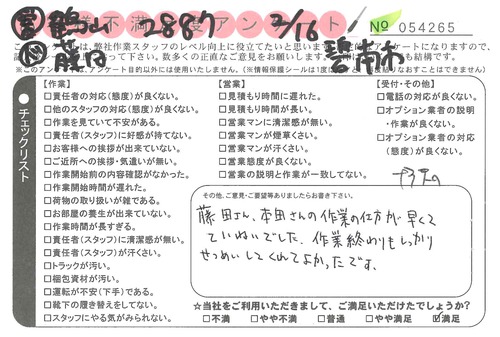 営 鶴山 2887 2/16 碧南市
作 藤田
不満 アンケート
No 054265
このアンケートは、弊社作業スタッフのレベル向上に役立てたいと思います
※このアンケートは、アンケート目的以外には使用いたしません。(※情報保護シールは1度はがすと
チェックリスト
【作業】
□責任者の対応(態度)が良くない。
□他のスタッフの対応(態度)が良くない。
□作業を見ていて不安がある。
□責任者(スタッフ)に好感が持てない。
□お客様への挨拶が出来ていない。
□ご近所への挨拶・気遣いが無い。
□作業開始前の内容確認がなかった。
□作業開始時間が遅れた。
□荷物の取り扱いが雑である。
□お部屋の養生が出来ていない。
□作業時間が長すぎる。
□責任者(スタッフ)に清潔感が無い。
□責任者(スタッフ)が汗くさい。
□トラックが汚い。
□梱包資材が汚い。
□運転が不安(下手)である。
□靴下の履き替えをしてない。
□スタッフにやる気がみられない。
【営業】
□見積もり時間に遅れた。
□見積もり時間が長い。
□営業マンに清潔感が無い。
□営業マンが煙草くさい。
□営業マンが汗くさい。
□営業態度が良くない。
□営業の説明と作業が一致してない。
【受付・その他】
□電話の対応が良くない。
□オプション業者の説明
・作業が良くない。
□オプション業者の対応
(態度)が良くない。
その他、ご意見・ご要望等ありましたらお書き下さい。
藤田さん、本田さんの作業の仕方が早くて
ていねいでした。作業終わりもしっかり
せつめいしてくれてよかったです。
☆当社をご利用いただきまして、ご満足いただけたでしょうか?
□不満 □やや不満 □普通 □やや満足 ☑満足